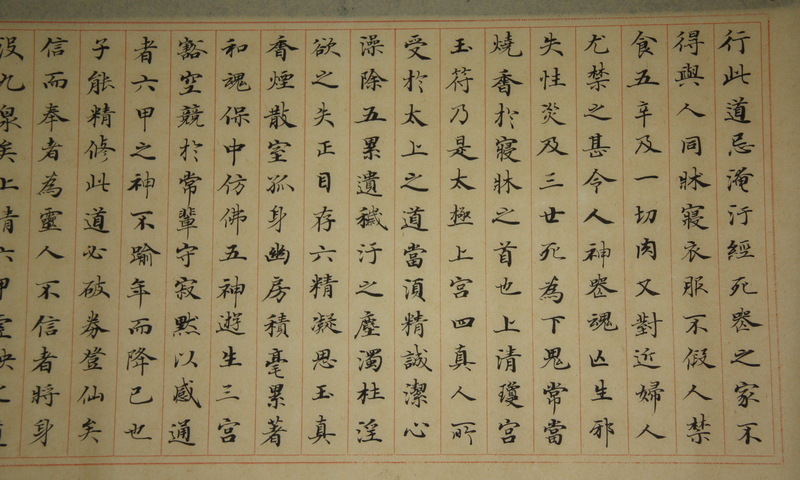 行此道忌淹汙經死喪之家不
得與人同牀寢衣服不假人禁
食五辛及一切肉又對近婦人
尤禁之甚令人神喪魂亡生邪
失性災及三世死為下鬼常當
燒香於寢牀之首也上清瓊宮
玉符乃是太極上宮四真人所
受於太上之道當須精誠潔心
澡除五累遺穢汙之塵濁杜淫
欲之失正目存六精凝思玉真
香煙散室孤身幽房積毫累著
和魂保中仿佛五神遊生三宮
豁空競於常輩守寂默以感通
者六甲之神不踰年而降己也
子能精修此道必破券登仙矣
信而奉者為靈人不信者將身
沒九泉矣上清六甲靈